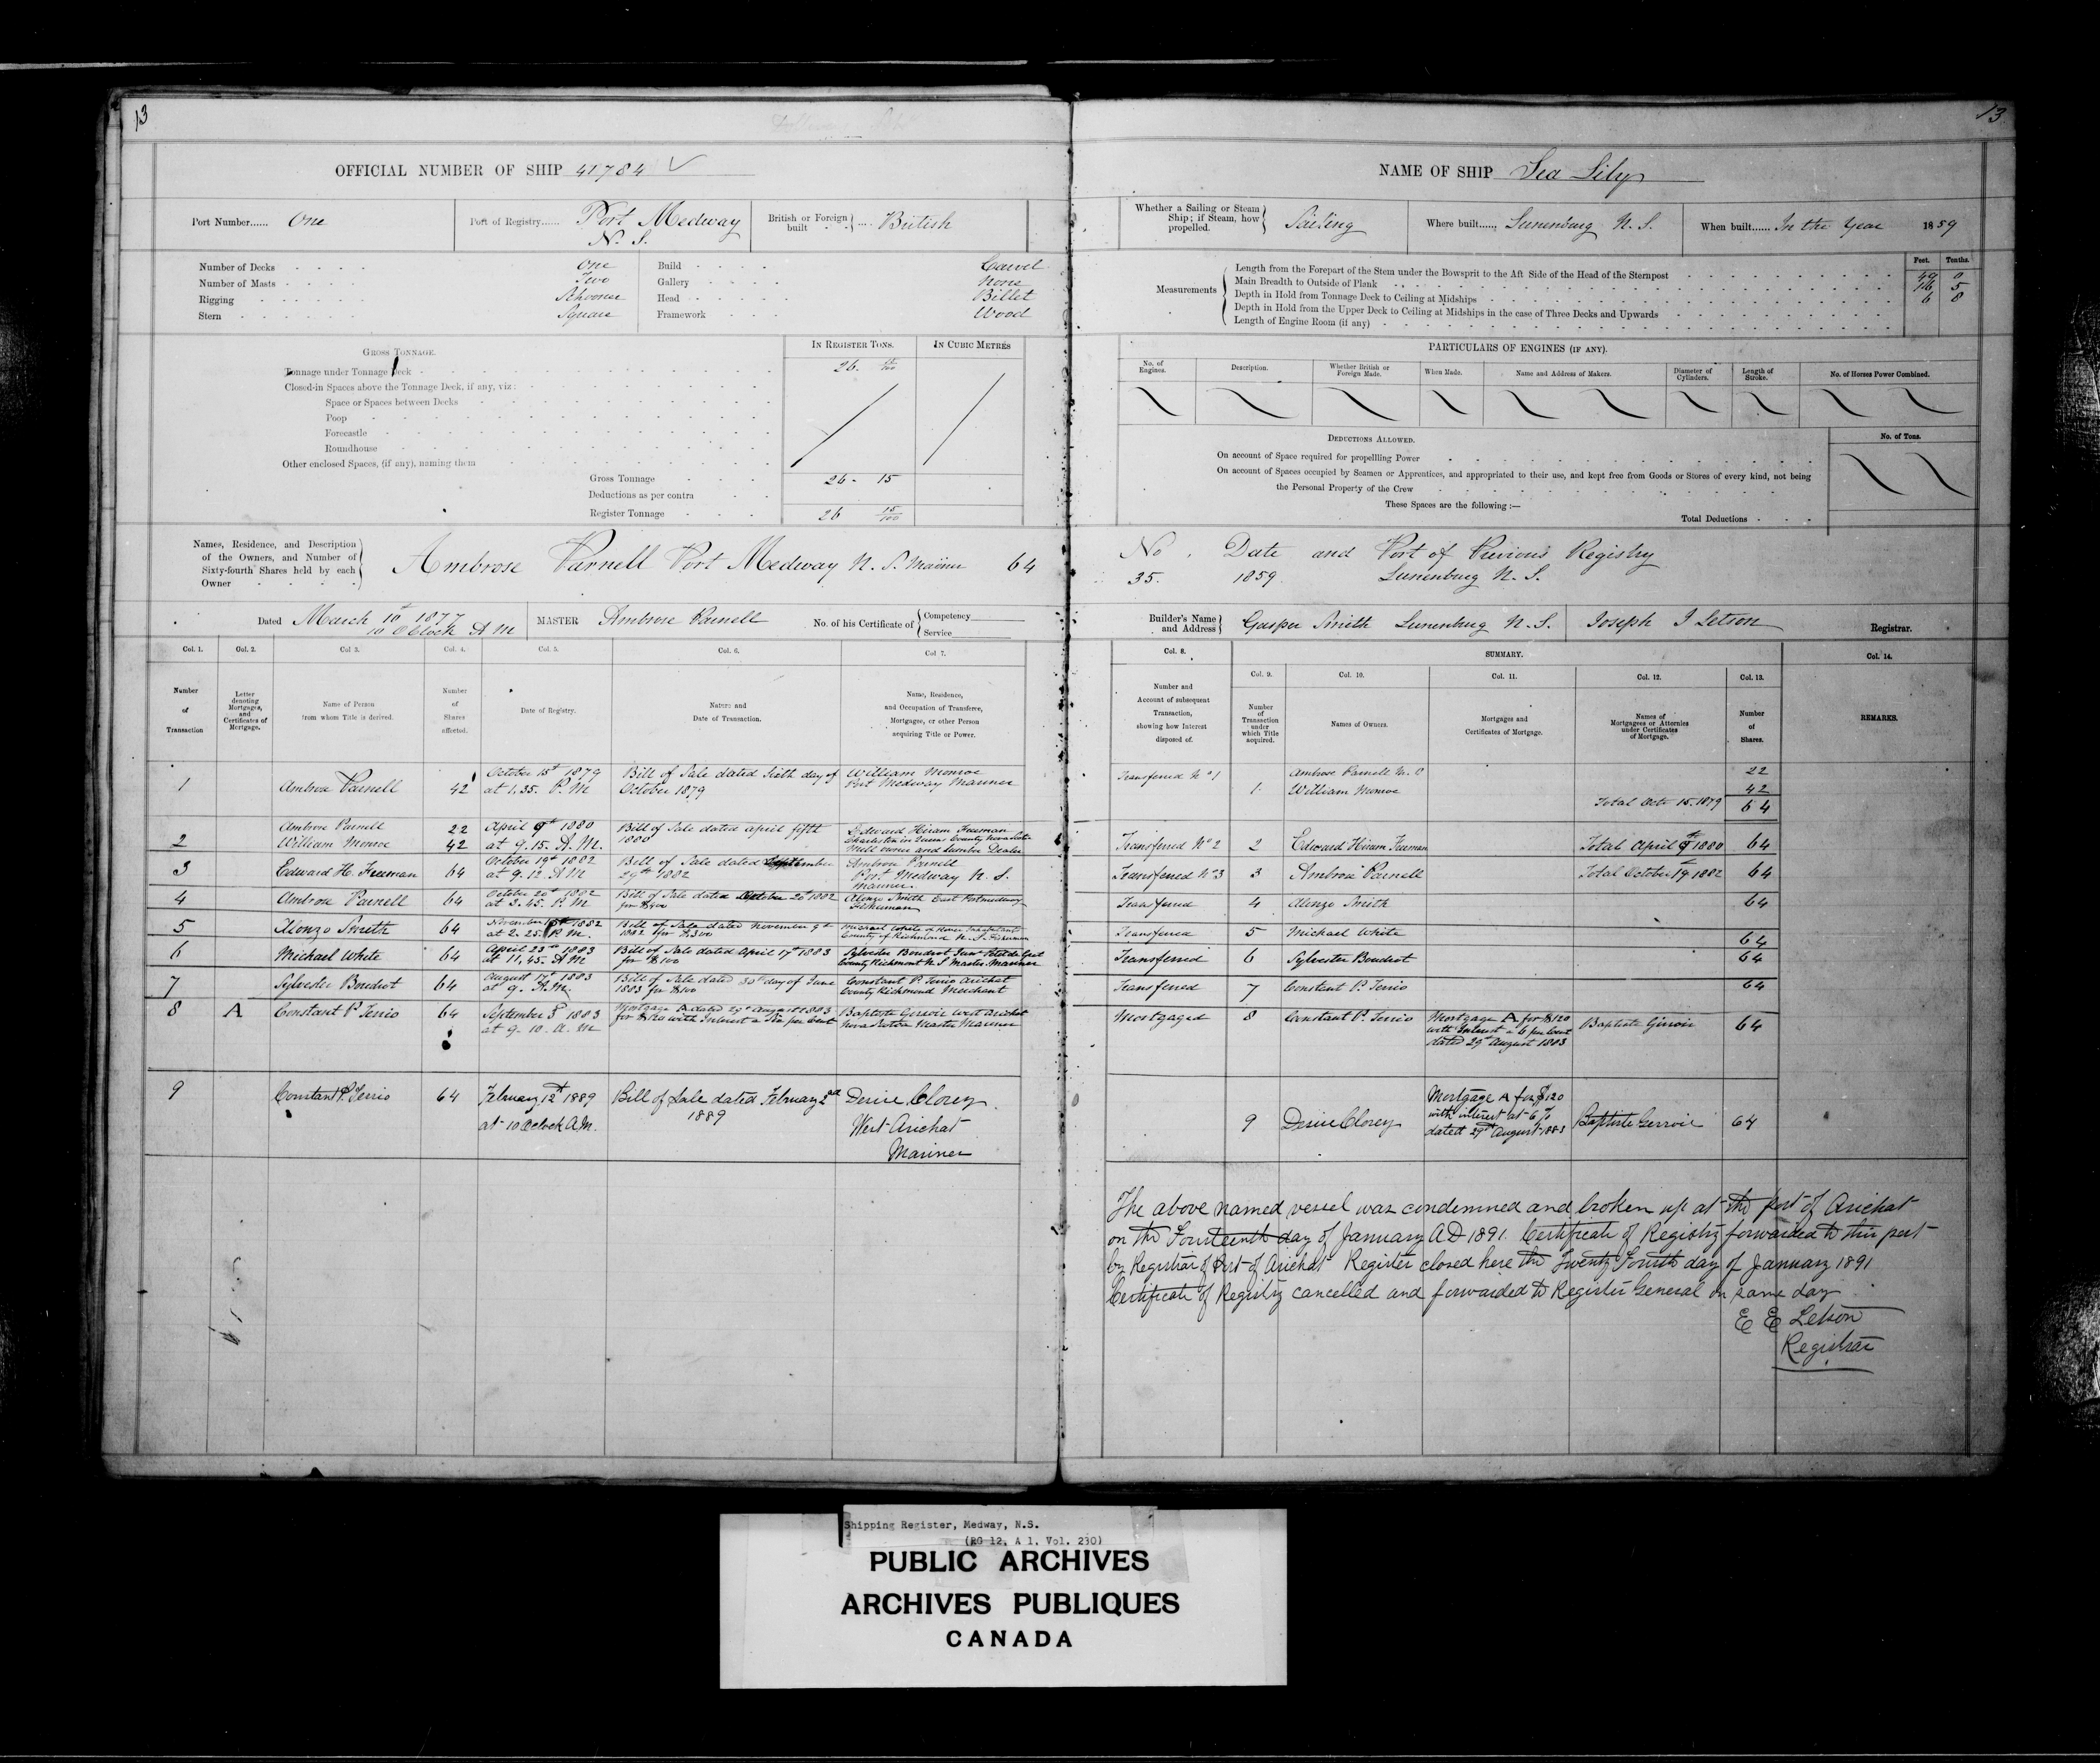 13
OFFICIAL NUMBER OF SHIP 41784
Port Number...... One
Port of Registry...... Port Medway N. S.
British or Foreign built .... British
Number of Decks One
Number of Masts Two
Rigging Schooner
Stern Square
Build Carvel
Gallery None
Head Billet
Framework Wood
GROSS TONNAGE.
IN REGISTER TONS.
IN CUBIC METRES
Tonnage under Tonnage Deck 26. 15/100
Closed-in Spaces above the Tonnage Deck, if any, viz:
Space or Spaces between Decks
Poop
Forecastle
Roundhouse
Other enclosed Spaces, (if any), naming them
Gross Tonnage 26 - 15
Deductions as per contra
Register Tonnage 26 15/100
Names, Residence, and Description of the Owners, and Number of Sixty-fourth Shares held by each Owner
Ambrose Parnell Port Medway N. S. Mariner 64
Dated March 10th 1877
10 O'Clock A M
MASTER Ambrose Parnell
No. of his Certificate of Competency Service
Col. 1. Col. 2. Col 3. Col. 4. Col. 5. Col. 6. Col 7.
Number of Transaction
Letter denoting Mortgages, and Certificates of Mortgage.
Name of Person from whom Title is derived.
Number of Shares affected.
Date of Registry.
Nature and Date of Transaction.
Name, Residence, and Occupation of Transferee, Mortgagee, or other Person acquiring Title or Power.
1 Ambrose Parnell 42 October 15th 1879 at 1.35. P. M Bill of Sale dated Sixth day of October 1879 William Monroe Port Medway Mariner
2 Ambrose Parnell 22 William Monroe 42 April 9th 1880 at 9.15. A. M. Bill of Sale dated april fifth 1880 Edward Hiram Freeman Charleston in Queens County Nova Scotia Mill owner and Lumber Dealer
3 Edward H. Freeman 64 October 19th 1882 at 9.12. A M Bill of Sale dated September 29th 1882 Ambrose Parnell Port Medway N. S. Mariner
4 Ambrose Parnell 64 October 20th 1882 at 3.45. P. M Bill of Sale dated October 20th 1882 for $400 Alonzo Smith East Portmedway Fisherman
5 Alonzo Smith 64 November 1882 at 2.25. P. M. Bill of Sale dated November 9th 1882 for $300 Michael White River Inhabitants County of Richmond N. S. Fisherman
6 Michael White 64 April 23rd 1883 at 11.45. A M Bill of Sale dated April 17th 1883 for $100 Sylvester Boudrot Junr Petit de Grat County Richmont N S Master Mariner
7 Sylvester Boudrot 64 August 17th 1883 at 9. A.M. Bill of Sale dated 30th day of June 1883 for $100 Constant P. Terrio Arichat County Richmond Merchant
8 A Constant P Terrio 64 September 5th 1883 at 9. 10. a. m Mortgage A dated 29th August 1883 for $120 with Interest a Six per Cent Baptiste Girroir West Arichat Nova Scotia Master Mariner
9 Constant P. Terrio 64 February 12th 1889 at 10 Oclock A.M. Bill of Sale dated February 2nd 1889 Desire Clorey West Arichat Mariner
13
NAME OF SHIP Sea Lily
Whether a Sailing or Steam Ship; if Steam, how propelled. Sailing
Where built...... Lunenburg N. S.
When built...... In the Year 1859
Feet. Tenths.
Measurements
Length from the Forepart of the Stem under the Bowsprit to the Aft Side of the Head of the Sternpost 49 0
Main Breadth to Outside of Plank 16 5
Depth in Hold from Tonnage Deck to Ceiling at Midships 6 8
Depth in Hold from the Upper Deck to Ceiling at Midships in the case of Three Decks and Upwards
Length of Engine Room (if any)
PARTICULARS OF ENGINES (IF ANY).
No. of Engines. Description. Whether British or Foreign Made. When Made. Name and Address of Makers. Diameter of Cylinders. Length of Stroke. No. of Horses Power Combined.
DEDUCTIONS ALLOWED.
No. of Tons.
On account of Space required for propellling Power
On account of Spaces occupied by Seamen or Apprentices, and appropriated to their use, and kept free from Goods or Stores of every kind, not being
the Personal Property of the Crew
These Spaces are the following :—
Total Deductions
No. Date and Port of Previous Registry
35. 1859 Lunenburg N. S.
Builder's Name and Address Gasper Smith Lunenburg N. S. Joseph I Letson Registrar.
Col. 8. SUMMARY. Col. 14.
Col. 9. Col. 10. Col. 11. Col. 12. Col. 13.
Number and Account of subsequent Transaction, showing how Interest disposed of.
Number of Transaction under which Title acquired.
Names of Owners.
Mortgages and Certificates of Mortgage.
Names of Mortgagees or Attornies under Certificates of Mortgage.
Number of Shares.
REMARKS.
Transferred No 1 Ambrose Parnell 22
1. William Monroe 42
Total Octo 15. 1879 64
Transferred No 2 2 Edward Hiram Freeman Total April 9th 1880 64
Transferred No 3 3 Ambrose Parnell Total October 19th 1882 64
Transferred 4 Alonzo Smith 64
Transferred 5 Michael White 64
Transferred 6 Sylvester Boudrot 64
Transferred 7 Constant P. Terrio 64
Mortgaged 8 Constant P. Terrio Mortgage A for $120 with Interest a 6 per Cent dated 29th August 1883 Baptiste Girroir 64
9 Desire Clorey Mortgage A for $120 with interest at 6% dated 29th August 1883 Baptiste Gerroir 64
The above named vessel was condemned and broken up at the port of Arichat
on the Fourteenth day of January AD 1891. Certificate of Registry forwarded to this port
by Registrar of Port of Arichat Register closed here the Twenty Fourth day of January 1891
Certificate of Registry cancelled and forwarded to Register General on same day
E E Letson
Registrar
Shipping Register, Medway, N.S.
(RG 12, A 1, Vol. 230)
PUBLIC ARCHIVES
ARCHIVES PUBLIQUES
CANADA